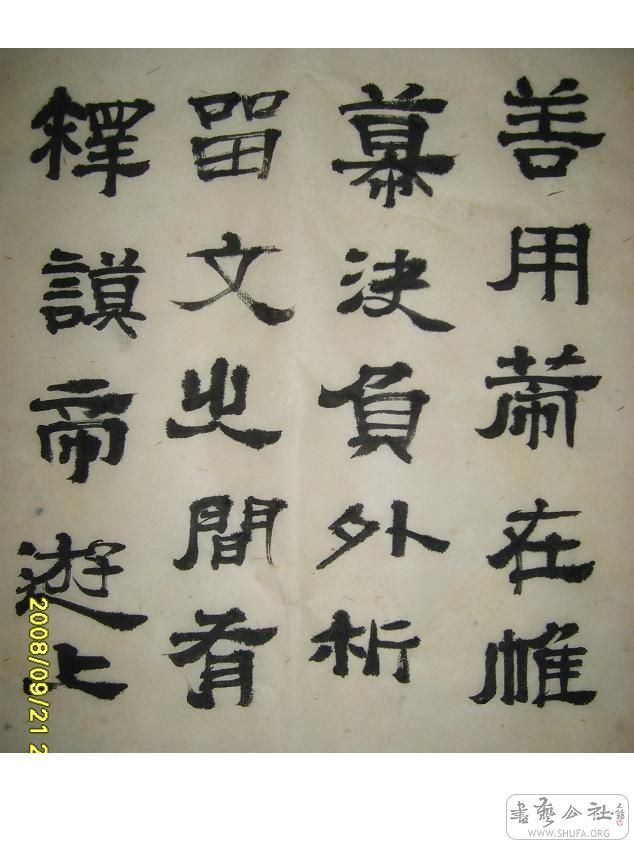 善用策在帷
幕決負外析
留文之間有
釋謨帝遊上
2008/09/21 2
書藝公社
WWW.SHUFA.ORG